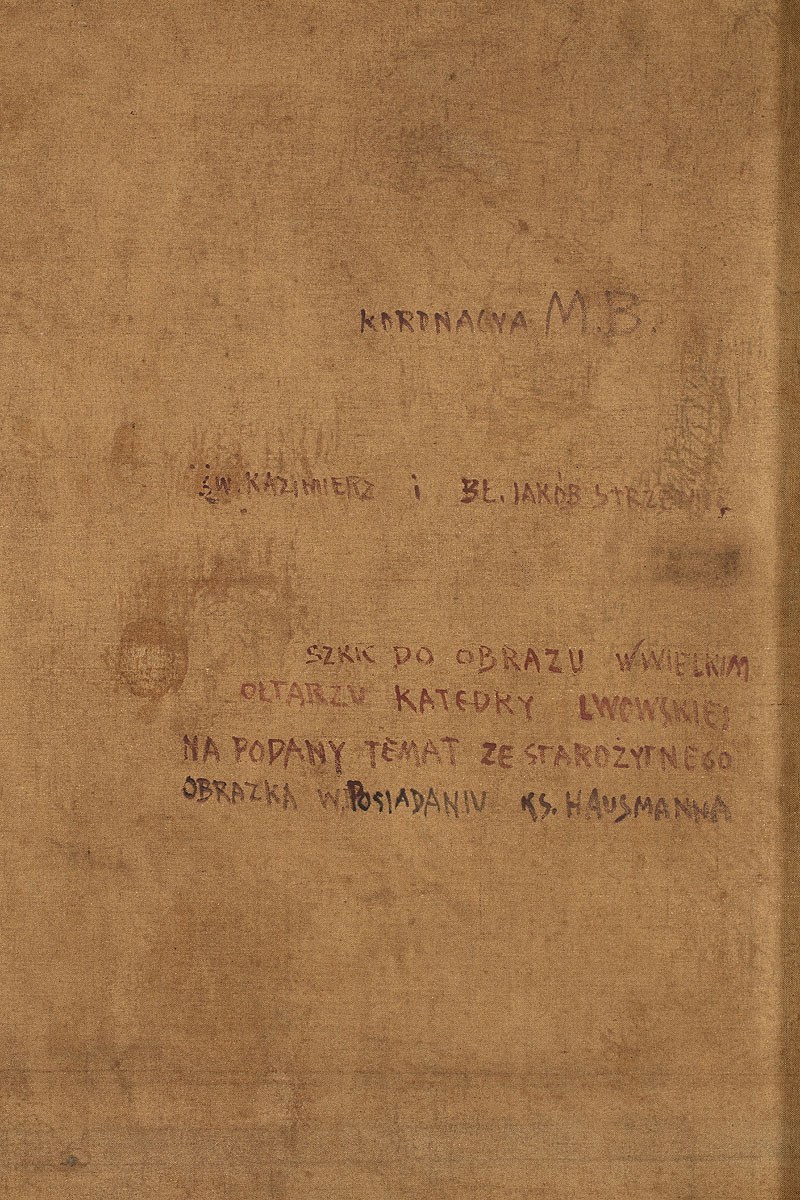 KORONACYA M.B.
ŚW. KAZIMIERZ i BŁ. JAKÓB
SZKIC DO OBRAZU W WIELKIM
OŁTARZU KATEDRY LWOWSKIEJ
NA PODANY TEMAT ZE STAROŻYTNEGO
OBRAZKA W POSIADANIU KS. HAUSMANNA